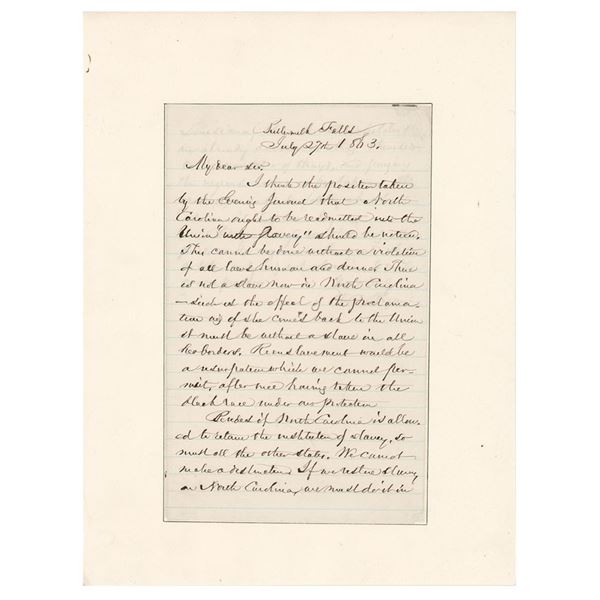 Buttermilk Falls
July 27th 1863.
My dear Sir.
I think the position taken
by the Evening Journal that a North
Carolina ought to be readmitted into the
Union "with slavery" should be noticed.
This cannot be done without a violation
of all laws human and divine. There
is not a slave now in North Carolina
— such is the effect of the proclama-
tion and if she comes back to the Union
it must be without a slave in all
her borders. Reenslavement would be
a usurpation which we cannot per-
mit, after once having taken the
black race under our protection
Besides if North Carolina is allow-
ed to retain the institution of slavery, so
must all the other states. We cannot
make a distinction. If we restore slavery
in North Carolina, we must do it in